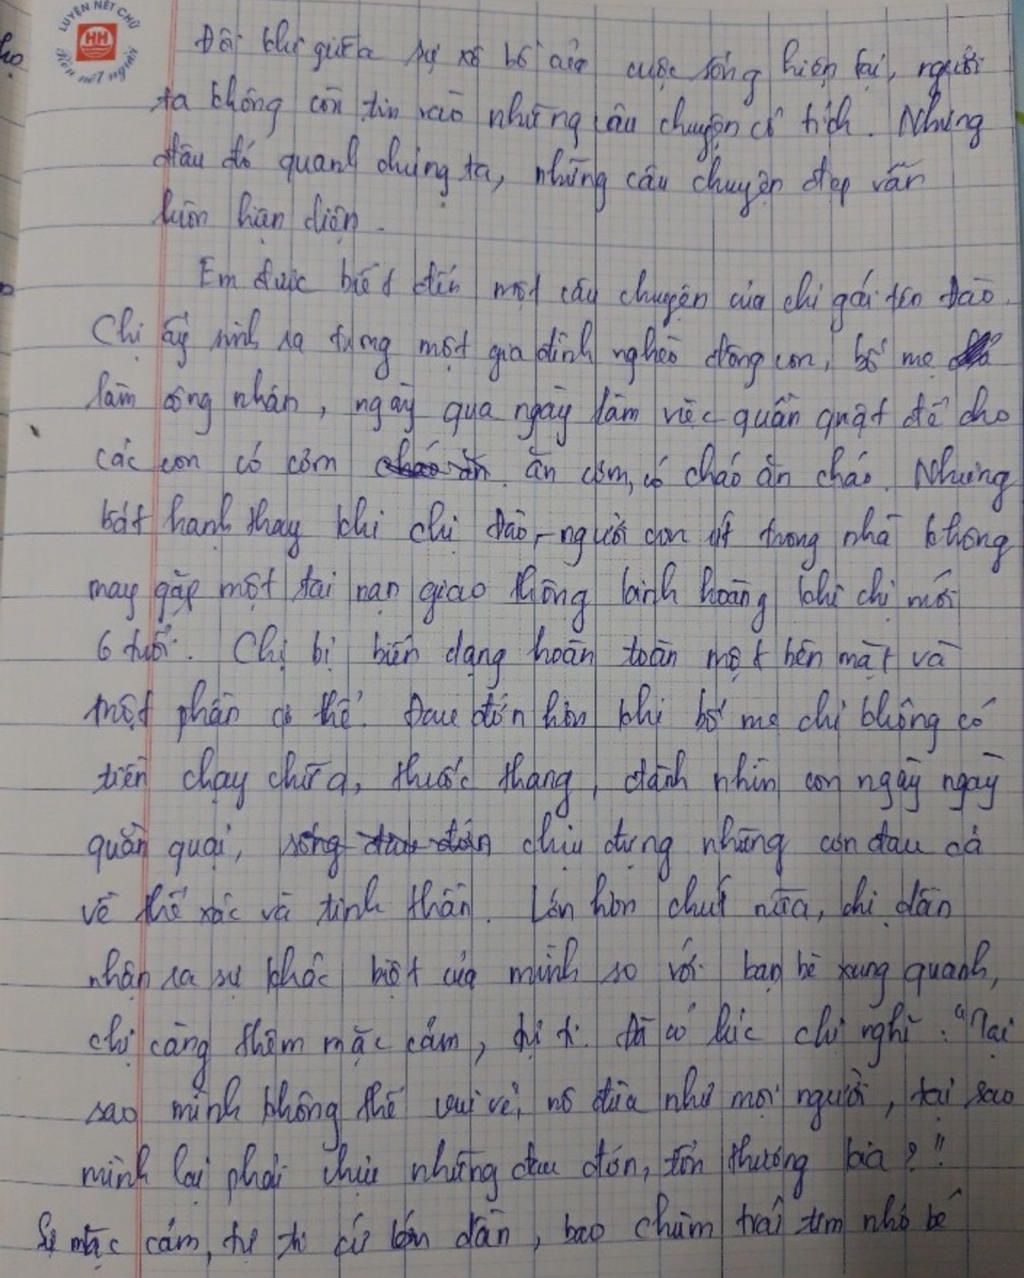 LUYỆN NÉT CHỮ
HH
Rèn nết người
Đôi khi giữa sự xô bồ của cuộc sống hiện tại, người
ta không còn tin vào những câu chuyện cổ tích. Nhưng
đâu đó quanh chúng ta, những câu chuyện đẹp vẫn
luôn hiện diện.
Em được biết đến một câu chuyện của chị gái tên Đào.
Chị ấy sinh ra trong một gia đình nghèo đông con, bố mẹ
làm công nhân, ngày qua ngày làm việc quần quật để cho
các con có cơm ăn cơm, có cháo ăn cháo. Nhưng
bất hạnh thay khi chị Đào, người con út trong nhà không
may gặp một tai nạn giao thông kinh hoàng khi chị mới
6 tuổi. Chị bị biến dạng hoàn toàn một bên mặt và
một phần cơ thể. Đau đớn hơn khi bố mẹ chị không có
tiền chạy chữa, thuốc thang, đành nhìn con ngày ngày
quằn quại, chịu đựng những cơn đau cả
về thể xác và tinh thần. Lớn hơn chút nữa, chị dần
nhận ra sự khác biệt của mình so với bạn bè xung quanh,
chị càng thêm mặc cảm, tự ti. Đã có lúc chị nghĩ: "Tại
sao mình không thể vui vẻ, nô đùa như mọi người, tại sao
mình lại phải chịu những đau đớn, tổn thương kia?"
Sự mặc cảm, tự ti cứ lớn dần, bao chùm trái tim nhỏ bé